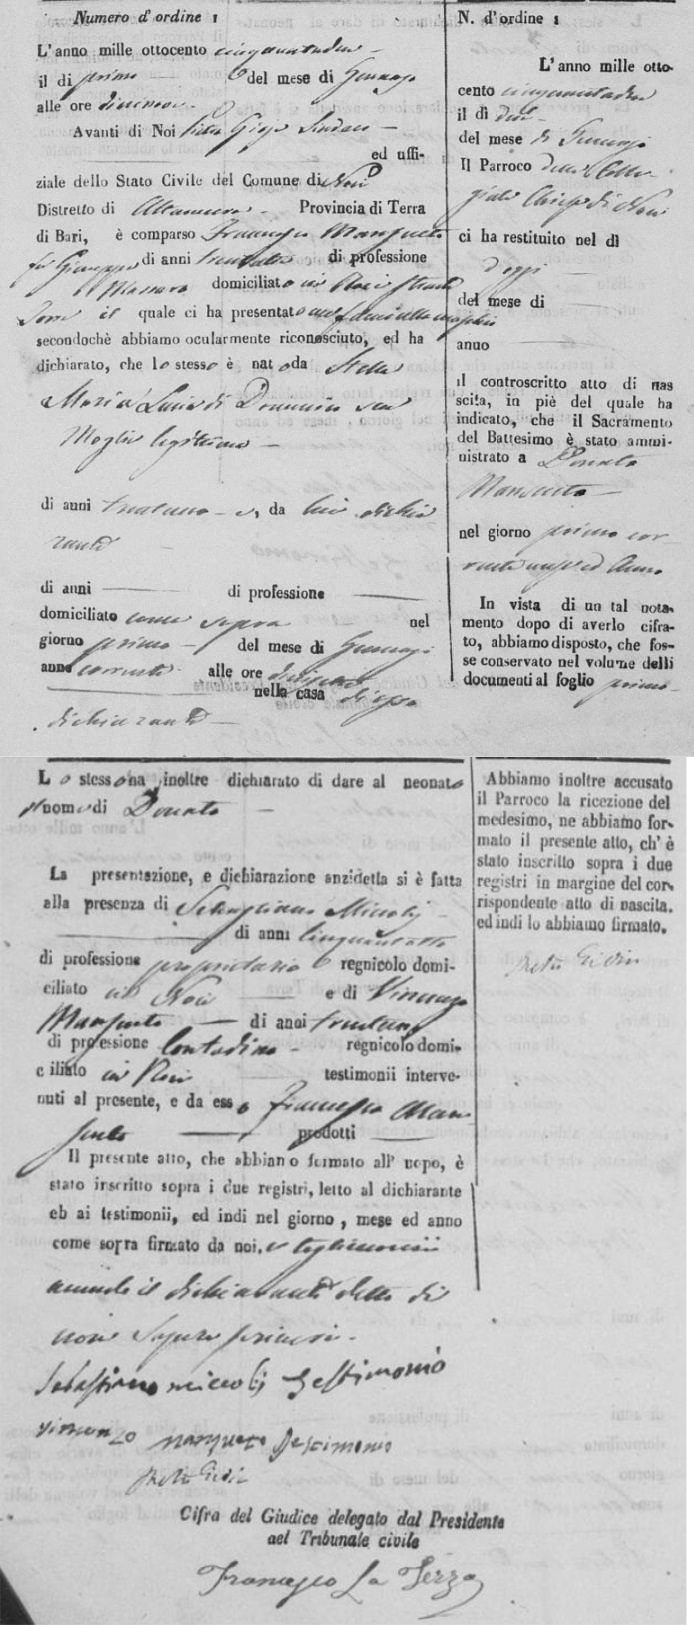 Numero d' ordine 1
L'anno mille ottocento cinquantadue
il dì primo del mese di Gennajo
alle ore diecinove
Avanti di Noi Sindaco
ed uffi-
ziale dello Stato Civile del Comune di Noci
Distretto di Altamura Provincia di Terra
di Bari, è comparso Francesco Mansueto
fu Giuseppe di anni di professione
Massaro domiciliato in Noci strada
il quale ci ha presentato un fanciullo maschio
secondochè abbiamo ocularmente riconosciuto, ed ha
dichiarato, che lo stesso è nato da Stella
Maria Lucia di Domenico sua
Moglie legittima
di anni trentuno e, da lui dichia
rante
di anni di professione
domiciliato come sopra nel
giorno primo del mese di Gennajo
anno corrente alle ore
nella casa di esso
dichiarante
N. d'ordine 1
L'anno mille otto-
cento cinquantadue
il dì due
del mese di Gennajo
Il Parroco della Colle-
giata Chiesa di Noci
ci ha restituito nel dì
d'oggi
del mese di
anno
il controscritto atto di nas
scita, in piè del quale ha
indicato, che il Sacramento
del Battesimo è stato ammi-
nistrato a Donato
Mansueto
nel giorno primo cor-
rente mese ed Anno
In vista di un tal nota-
mento dopo di averlo cifra-
to, abbiamo disposto, che fos-
se conservato nel volume delli
documenti al foglio primo
Lo stesso ha inoltre dichiarato di dare al neonato
il nome di Donato
La presentazione, e dichiarazione anzidetta si è fatta
alla presenza di Sebastiano Miccolij
di anni cinquantotto
di professione proprietario regnicolo domi-
ciliato in Noci e di Vincenzo
Mansueto di anni trentuno
di professione Contadino regnicolo domi-
ciliato in Noci testimonii interve-
nuti al presente, e da esso Francesco Man
sueto prodotti
Il presente atto, che abbiamo formato all' uopo, è
stato inscritto sopra i due registri, letto al dichiarante
eb ai testimonii, ed indi nel giorno, mese ed anno
come sopra firmato da noi, e testimonii
avendo il dichiarante detto di
non sapere scrivere.
Sebastiano miccolij Testimonio
vincenzo mansueto Testimonio
Cifra del Giudice delegato dal Presidente
nel Tribunale civile
Francesco La Terza
Abbiamo inoltre accusato
il Parroco la ricezione del
medesimo, ne abbiamo for-
mato il presente atto, ch' è
stato inscritto sopra i due
registri in margine del cor-
rispondente atto di nascita.
ed indi lo abbiamo firmato.